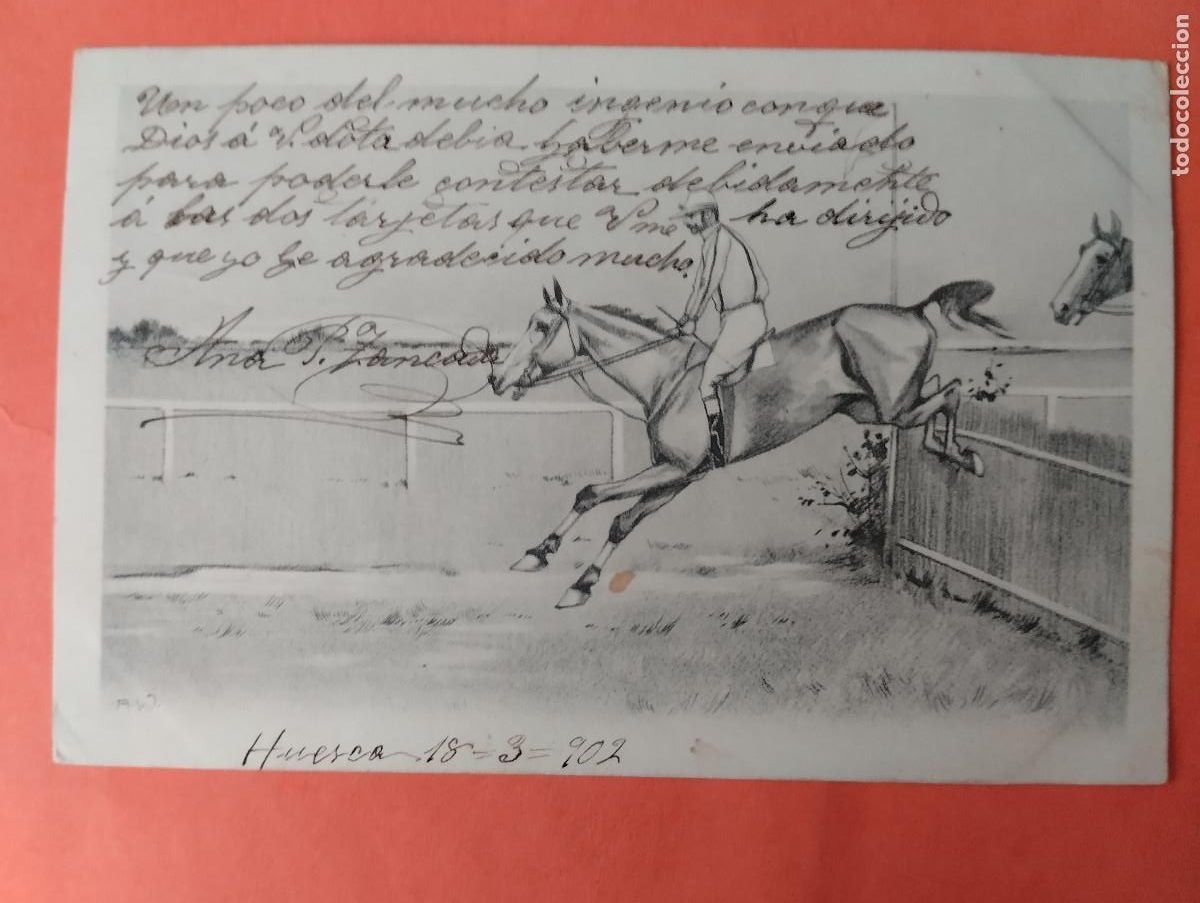 Un poco del mucho ingenio conque
Dios á V. dota debia haberme enviado
para poderle contestar debidamente
á las dos tarjetas que V me ha dirijido
y que yo he agradecido mucho.
Ana P. Zancada
Huesca 18=3=902
todocoleccion